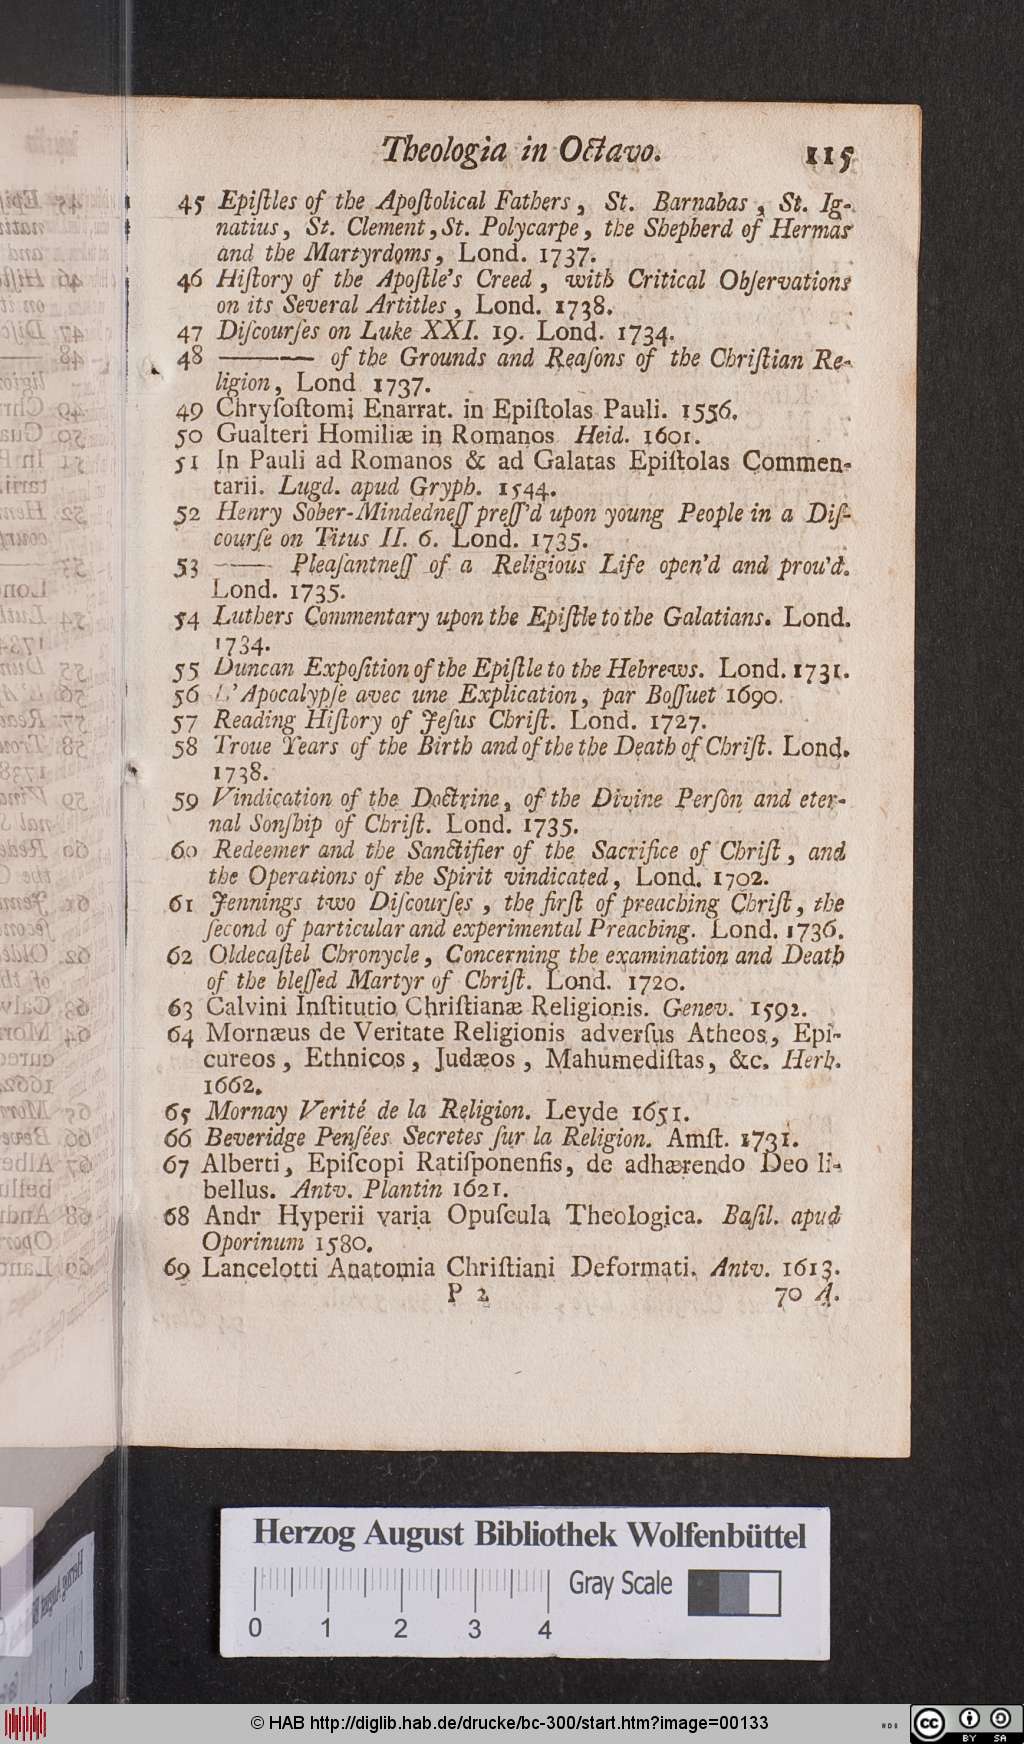 Theologia in Octavo. 115
45 Epiſtles of the Apoſtolical Fathers, St. Barnabas, St. Ig-
natius, St. Clement, St. Polycarpe, the Shepherd of Hermas
and the Martyrdoms, Lond. 1737.
46 Hiſtory of the Apoſtle's Creed, with Critical Obſervations
on its Several Artitles, Lond. 1738.
47 Diſcourſes on Luke XXI. 19. Lond. 1734.
48 ——— of the Grounds and Reaſons of the Chriſtian Re-
ligion, Lond 1737.
49 Chryſoſtomi Enarrat. in Epiſtolas Pauli. 1556.
50 Gualteri Homiliæ in Romanos Heid. 1601.
51 In Pauli ad Romanos & ad Galatas Epiſtolas Commen-
tarii. Lugd. apud Gryph. 1544.
52 Henry Sober-Mindedneſſ preſſ'd upon young People in a Diſ-
courſe on Titus II. 6. Lond. 1735.
53 —— Pleaſantneſſ of a Religious Life open'd and prou'd.
Lond. 1735.
54 Luthers Commentary upon the Epiſtle to the Galatians. Lond.
1734.
55 Duncan Expoſition of the Epiſtle to the Hebrews. Lond. 1731.
56 L'Apocalypſe avec une Explication, par Boſſuet 1690.
57 Reading Hiſtory of Jeſus Chriſt. Lond. 1727.
58 Troue Years of the Birth and of the the Death of Chriſt. Lond.
1738.
59 Vindication of the Doctrine, of the Divine Perſon and eter-
nal Sonſhip of Chriſt. Lond. 1735.
60 Redeemer and the Sanctifier of the Sacrifice of Chriſt, and
the Operations of the Spirit vindicated, Lond. 1702.
61 Jennings two Diſcourſes, the firſt of preaching Chriſt, the
ſecond of particular and experimental Preaching. Lond. 1736.
62 Oldecaſtel Chronycle, Concerning the examination and Death
of the bleſſed Martyr of Chriſt. Lond. 1720.
63 Calvini Inſtitutio Chriſtianæ Religionis. Genev. 1592.
64 Mornæus de Veritate Religionis adverſus Atheos, Epi-
cureos, Ethnicos, Judæos, Mahumediſtas, &c. Herb.
1662.
65 Mornay Verité de la Religion. Leyde 1651.
66 Beveridge Penſées Secretes ſur la Religion. Amſt. 1731.
67 Alberti, Epiſcopi Ratiſponenſis, de adhærendo Deo li-
bellus. Antv. Plantin 1621.
68 Andr Hyperii varia Opuſcula Theologica. Baſil. apud
Oporinum 1580.
69 Lancelotti Anatomia Chriſtiani Deformati. Antv. 1613.
P 2 70 A.
Herzog August Bibliothek Wolfenbüttel
Gray Scale
0 1 2 3 4
© HAB http://diglib.hab.de/drucke/bc-300/start.htm?image=00133
cc BY SA